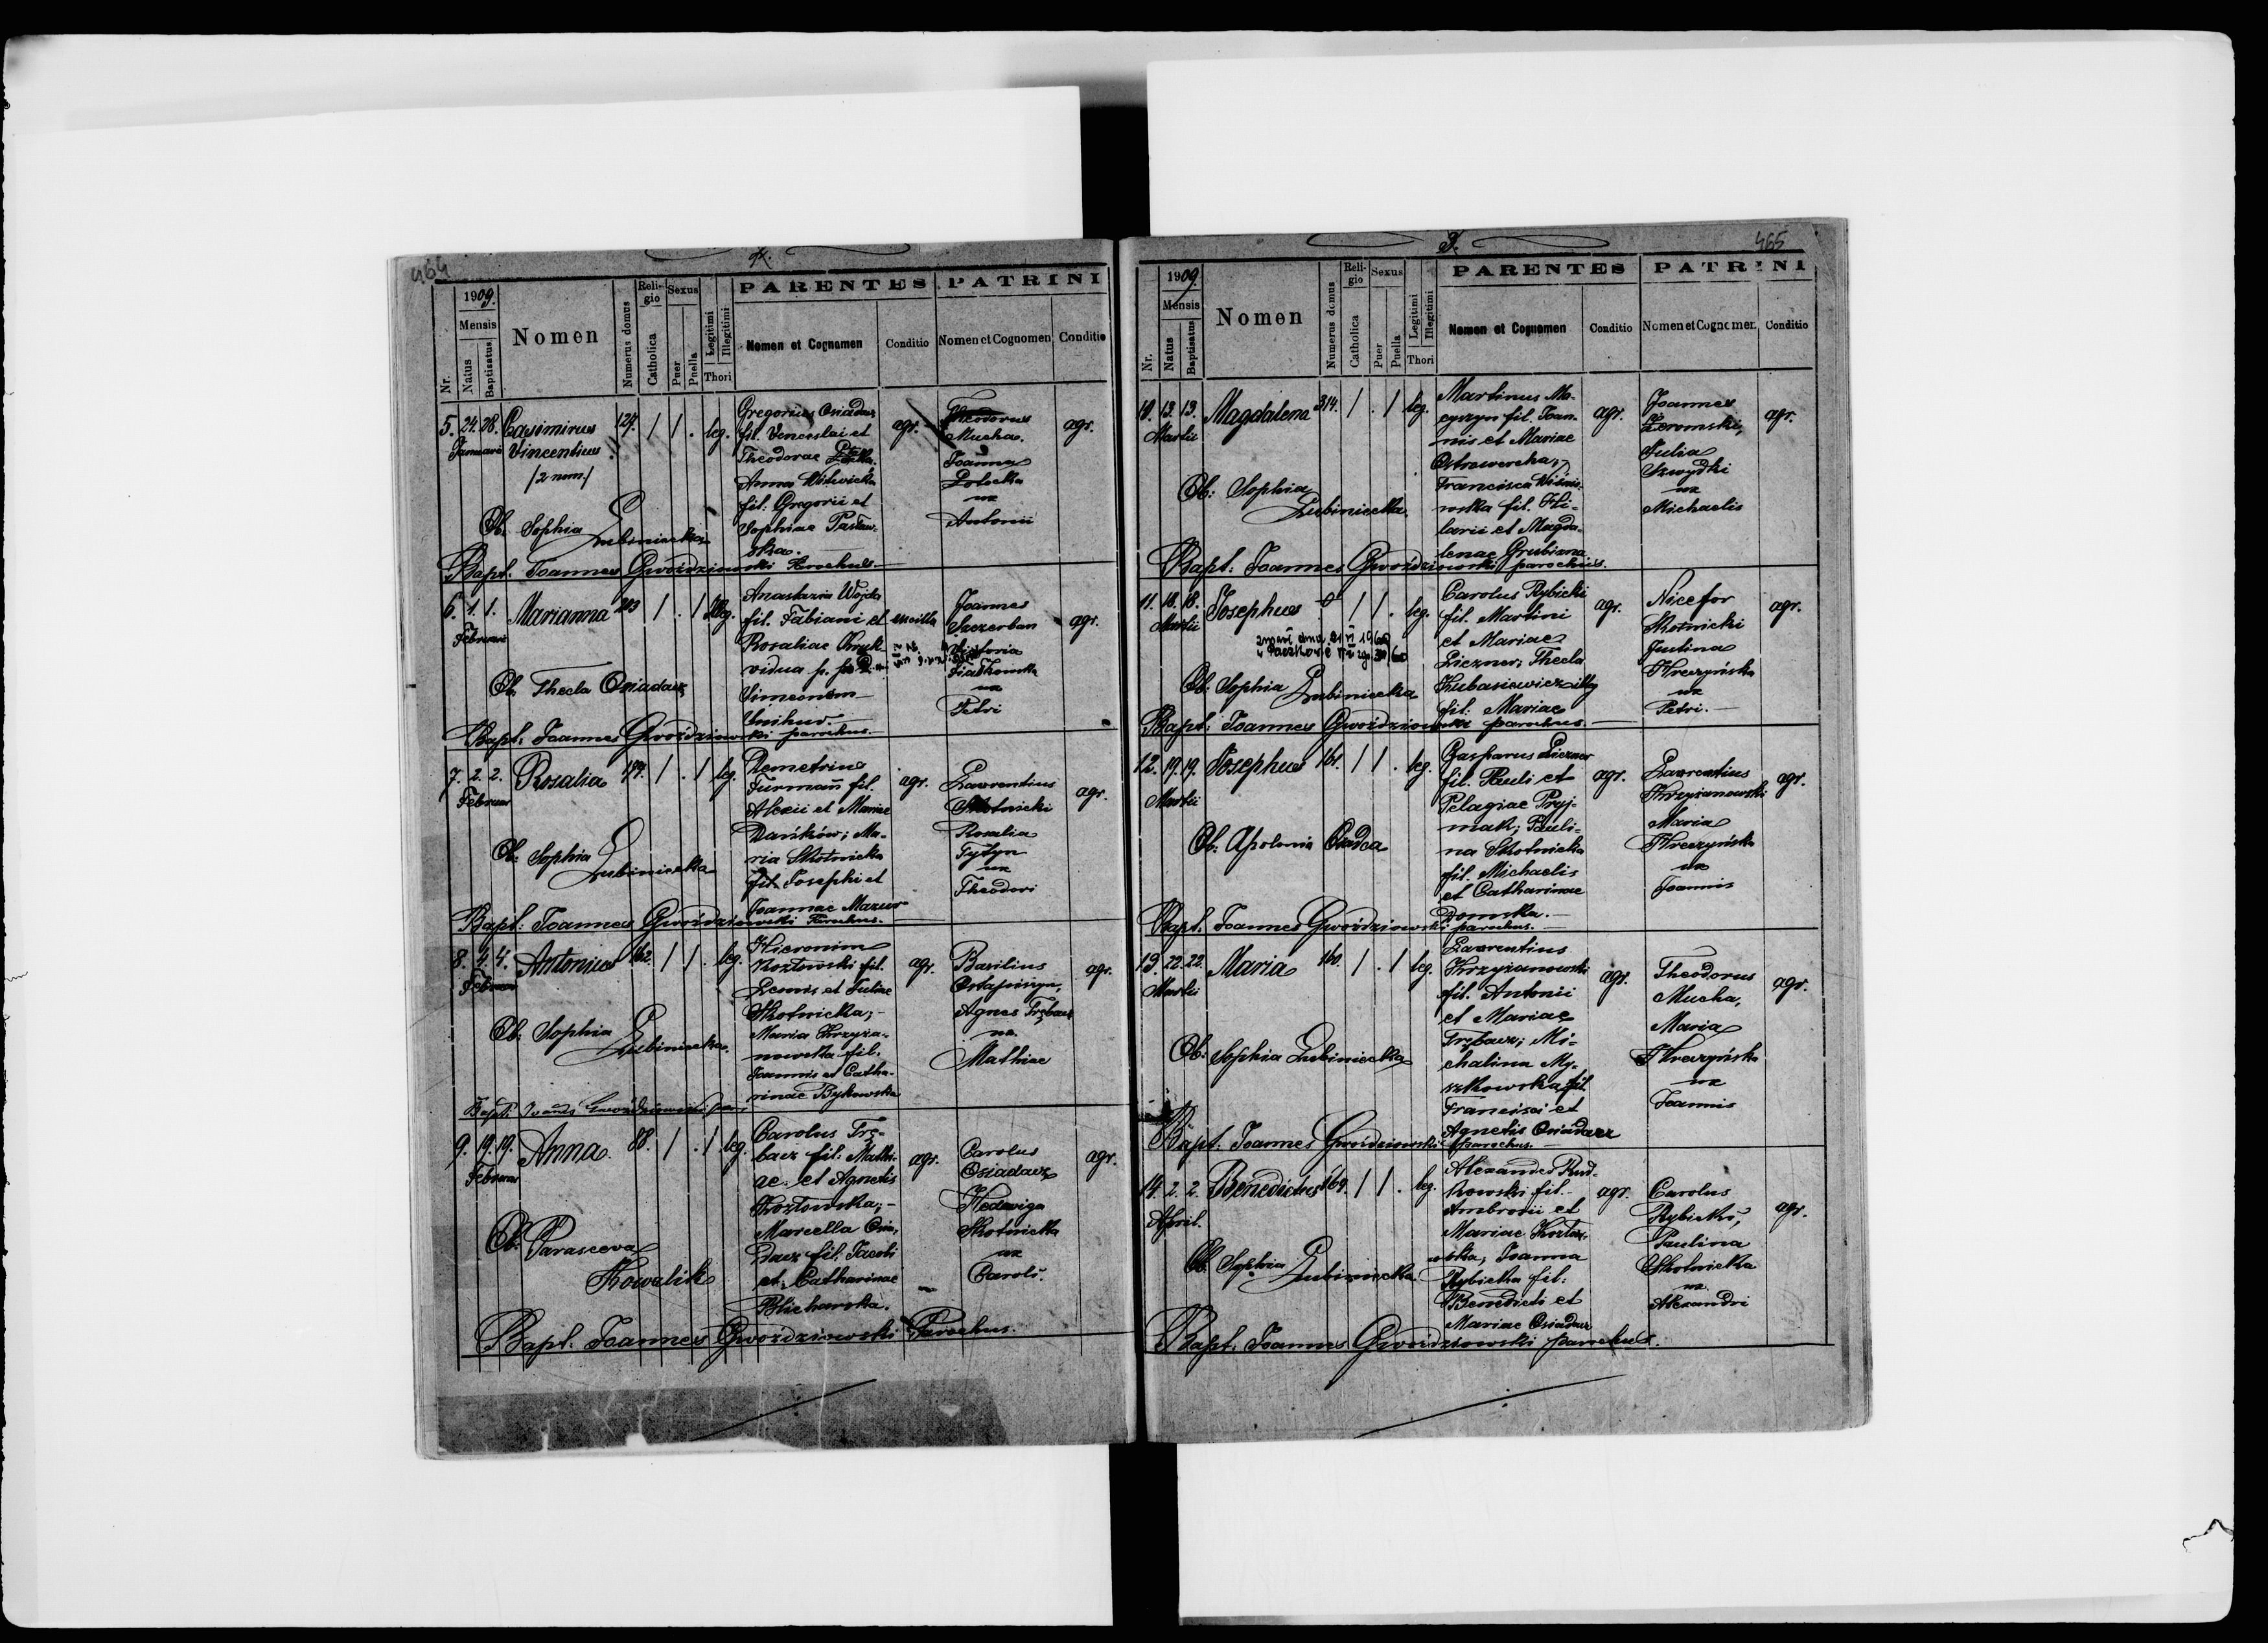 464
1909.
Mensis
Nr.
Natus
Baptisatus
Nomen
Numerus domus
Religio
Catholica
Sexus
Puer
Puella
Legitimi
Illegitimi
Thori
PARENTES
Nomen et Cognomen
Conditio
PATRINI
Nomen et Cognomen
Conditio
5. 24. 28. Casimirus 127. 1 1 . leg.
Januarii Vincentius
/2 nom./
Gregorius Osiadacz
fil. Venceslai et
Theodorae
Anna Witwicka
fil. Gregorii et
Sophiae
agr.
Theodorus
Mucha.
Joanna
ux
Antonii
agr.
Ob. Sophia Lubiniecka
Bapt. Joannes Gwoździowski Parochus.
6. 1. 1. Marianna 203 1 . 1
Februarii
Anastazia Wojda
fil. Fabiani et
Rosaliae
vidua p.
Simeonem
ancilla
Joannes
Szczerban
Victoria
Fiałkowska
ux
Petri
agr.
Ob. Thecla Osiadacz
Bapt. Joannes Gwoździowski parochus.
7. 2. 2. Rosalia 1 . 1 leg.
Februar
Demetrius
Furmań fil.
Alexii et Mariae
Dańków; Ma-
ria Skotnicka
fil. Josephi et
Joannae Mazur
agr.
Laurentius
Skotnicki
Rosalia
Tytyn
ux
Theodori
agr.
Ob. Sophia Lubiniecka
Bapt. Joannes Gwoździowski Parochus.
8. 4. 4. Antonius 162. 1 1 . leg.
Februar
Hieronim
Kozłowski fil.
Leonis et Juliae
Skotnicka;
Maria Krzyża-
nowska fil.
Joannis et Catha-
rinae Bykowska
agr.
Basilius
Ostapiszyn,
Agnes Trębacz
ux
Mathiae
agr.
Ob. Sophia Lubiniecka.
Bapt. Joannes Gwoździowski par.
9. 19. 19. Anna. 88. 1 . 1 leg.
Februar
Carolus Trę-
bacz fil. Mathi-
ae et Agnetis
Kozłowska;
Marcella Osia-
dacz fil. Jacobi
et Catharinae
Blicharska.
agr.
Carolus
Osiadacz
Hedwiga
Skotnicka
ux
Caroli.
agr.
Ob. Parasceva
Kowalik
Bapt. Joannes Gwoździowski Parochus.
465
1909.
Mensis
Nr.
Natus
Baptisatus
Nomen
Numerus domus
Religio
Catholica
Sexus
Puer
Puella
Legitimi
Illegitimi
Thori
PARENTES
Nomen et Cognomen
Conditio
PATRINI
Nomen et Cognomen
Conditio
10. 13. 13. Magdalena 314. 1 . 1 leg.
Martii
Martinus Ma-
cyszyn fil. Joan-
nis et Mariae
Ostrowercha;
Francisca Wiśnio-
wska fil. Hi-
larii et Magda-
lenae Grubizna
agr.
Joannes
Żeromski,
Julia
Szwydki
ux
Michaelis
agr.
Ob: Sophia
Lubiniecka.
Bapt: Joannes Gwoździowski parochus.
11. 18. 18. Josephus 1 1 . leg.
Martii
Carolus Rybicki
fil. Martini
et Mariae
Liczner; Thecla
Kubasiewicz illeg
fil. Mariae
agr.
Nicefor
Skotnicki
Justina
Kreczyńska
ux
Petri.
agr.
Ob. Sophia Lubiniecka
Bapt: Joannes Gwoździowski parochus.
12. 19. 19. Josephus 161. 1 1 . leg.
Martii
Casparus Liczner
fil. Pauli et
Pelagiae Pryj-
mak; Pauli-
na Skotnicka
fil. Michaelis
et Catharinae
Domska.
agr.
Laurentius
Krzyżanowski
Maria
Kreczyńska
ux
Joannis
agr.
Ob: Apolonia Osadca
Bapt. Joannes Gwoździowski parochus.
13. 22. 22. Maria 160. 1 . 1 leg.
Martii
Laurentius
Krzyżanowski
fil. Antonii
et Mariae
Trębacz; Mi-
chalina My-
szkowska fil.
Francisci et
Agnetis Osiadacz
agr.
Theodorus
Mucha,
Maria
Kreczyńska
ux
Joannis
agr.
Ob. Sophia Lubiniecka
Bapt. Joannes Gwoździowski parochus.
14. 2. 2. Benedictus 169. 1 1 . leg.
April.
Alexander Rud-
kowski fil.
Ambrosii et
Mariae Kozło-
wska, Joanna
Rybicka fil.
Benedicti et
Mariae Osiadacz
agr.
Carolus
Rybicki,
Paulina
Skotnicka
ux
Alexandri
agr.
Ob. Sophia Lubiniecka
Bapt. Joannes Gwoździowski parochus.